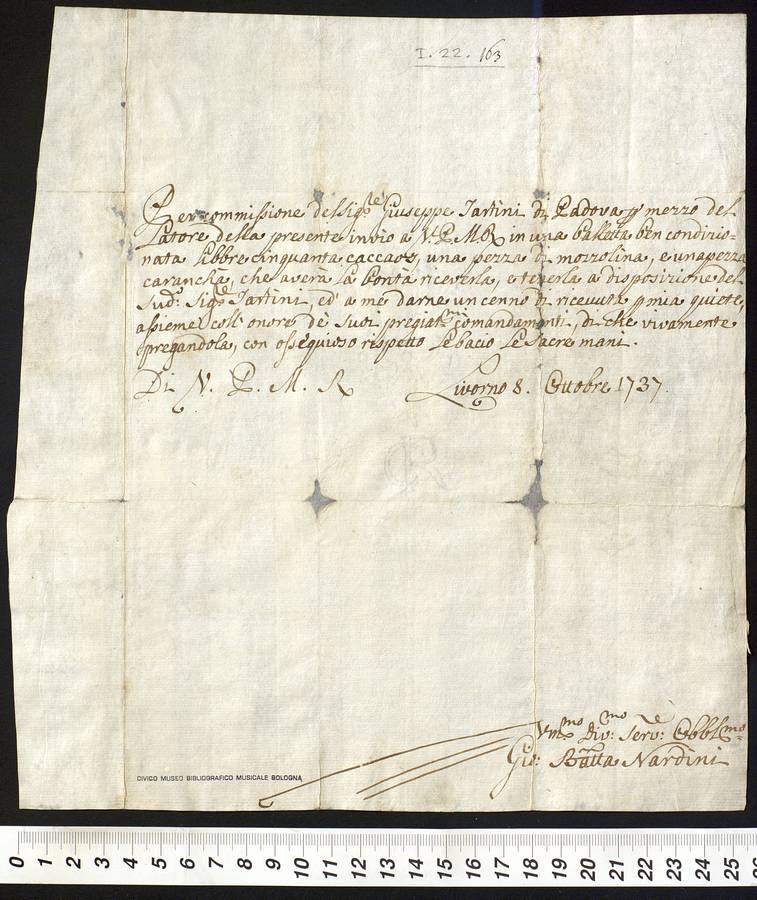 I. 22. 163
Per commissione del Sig.re Giuseppe Tartini di Padova p mezzo del
Latore della presente invio a V. P. M. R. in una balletta ben condizio=
nata lebbre cinquanta caccaos, una pezza di mozzolina, e una pezza
carancha, che averà la bontà riceverla, e tenerla a disposizione del
Sud.o Sig.re Tartini, ed' a me darne un cenno di ricevuta p mia quiete,
assieme coll' onore de suoi pregiat.mi comandamenti, di che vivamente
pregandola, con ossequioso rispetto le bacio le Sacre mani.
Di V. P. M. R
Livorno 8. Ottobre 1737.
Vm.mo Div.mo Serv.re Obbl.mo
Gio: Batta Nardini
CIVICO MUSEO BIBLIOGRAFICO MUSICALE BOLOGNA
0 1 2 3 4 5 6 7 8 9 10 11 12 13 14 15 16 17 18 19 20 21 22 23 24 25